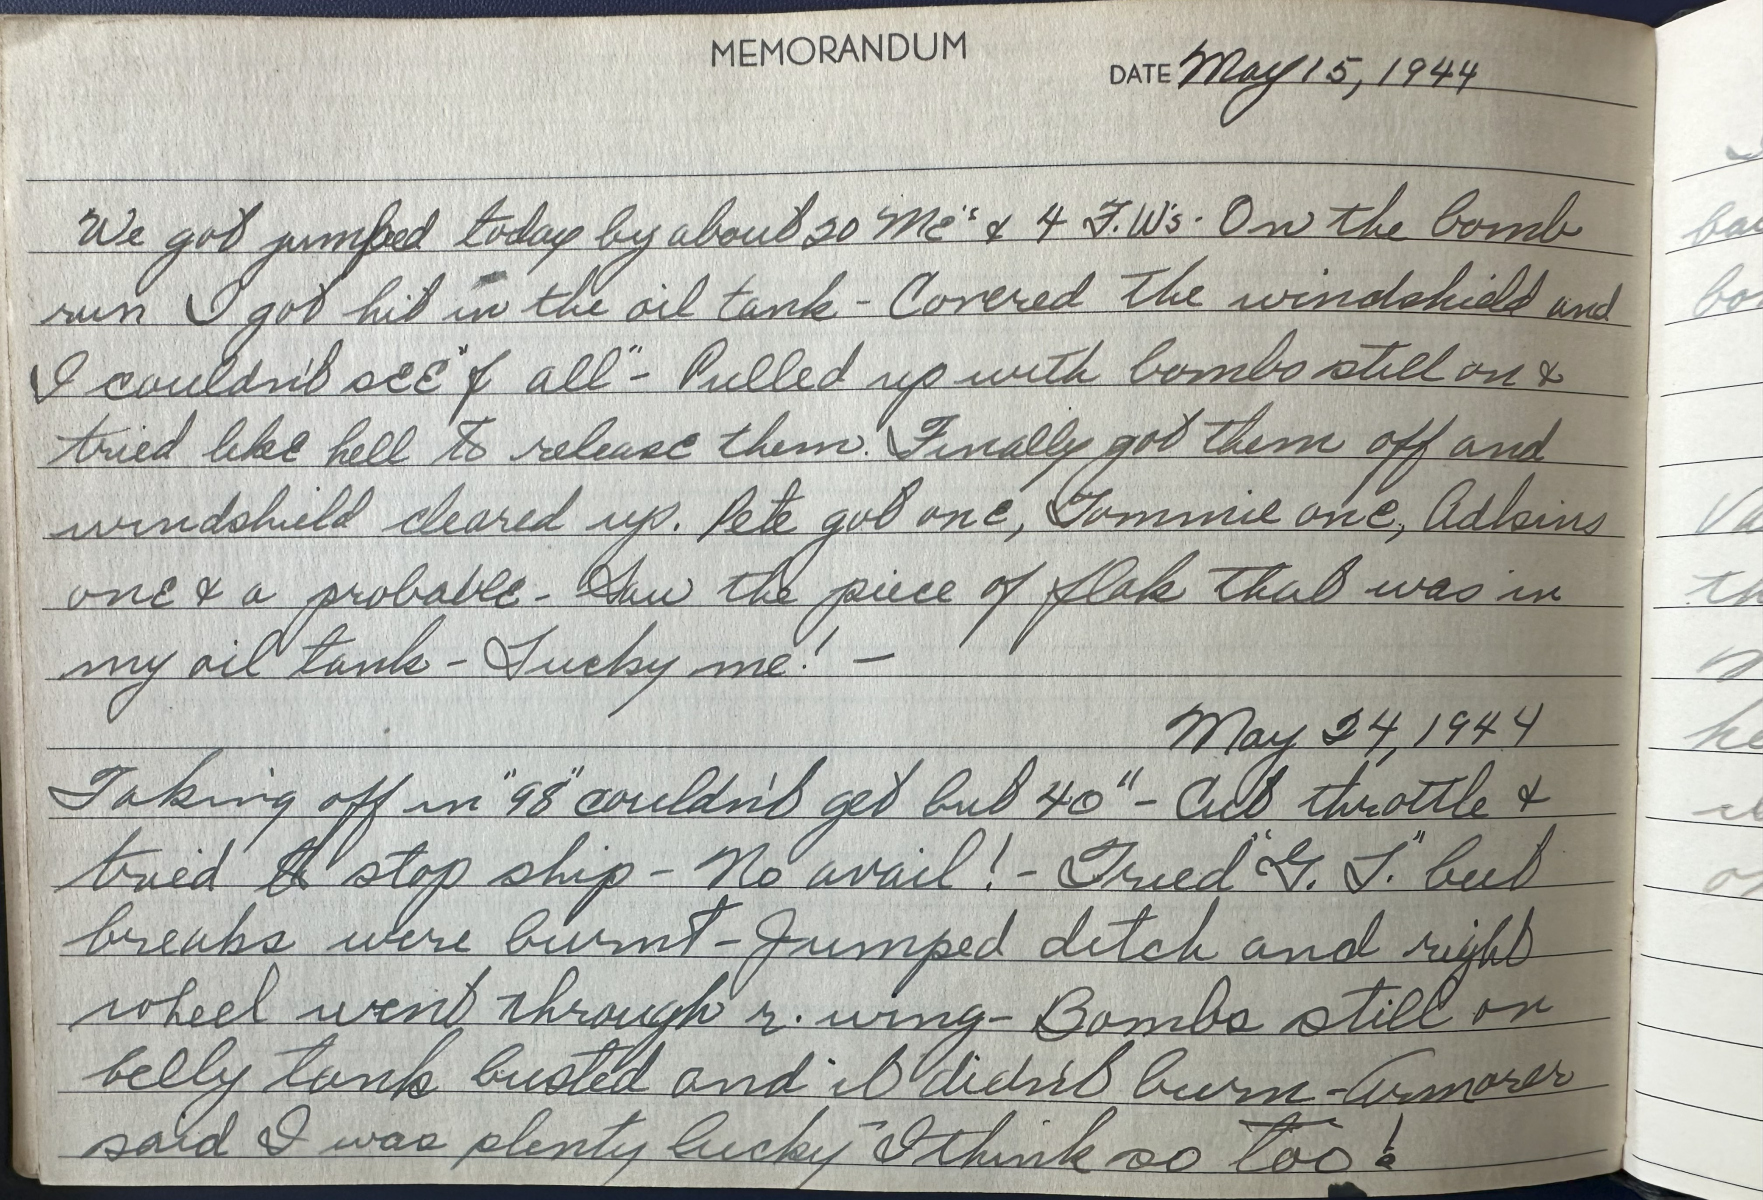 MEMORANDUM
DATE May 15, 1944
We got jumped today by about 20 Me's & 4 F.W's. On the bomb
run I got hit in the oil tank - Covered the windshield and
I couldn't see "f all" - Pulled up with bombs still on &
tried like hell to release them. Finally got them off and
windshield cleared up. Pete got one, Tommie one, Adkins
one & a probable - Saw the piece of flak that was in
my oil tank - Lucky me! -
May 24, 1944
Taking off in "98" couldn't get but 40" - Cut throttle &
tried to stop ship - No avail! - Tried "G. L." but
breaks were burnt - Jumped ditch and right
wheel went through r. wing - Bombs still on
belly tank busted and it didn't burn - Armorer
said I was plenty lucky - I think so too!